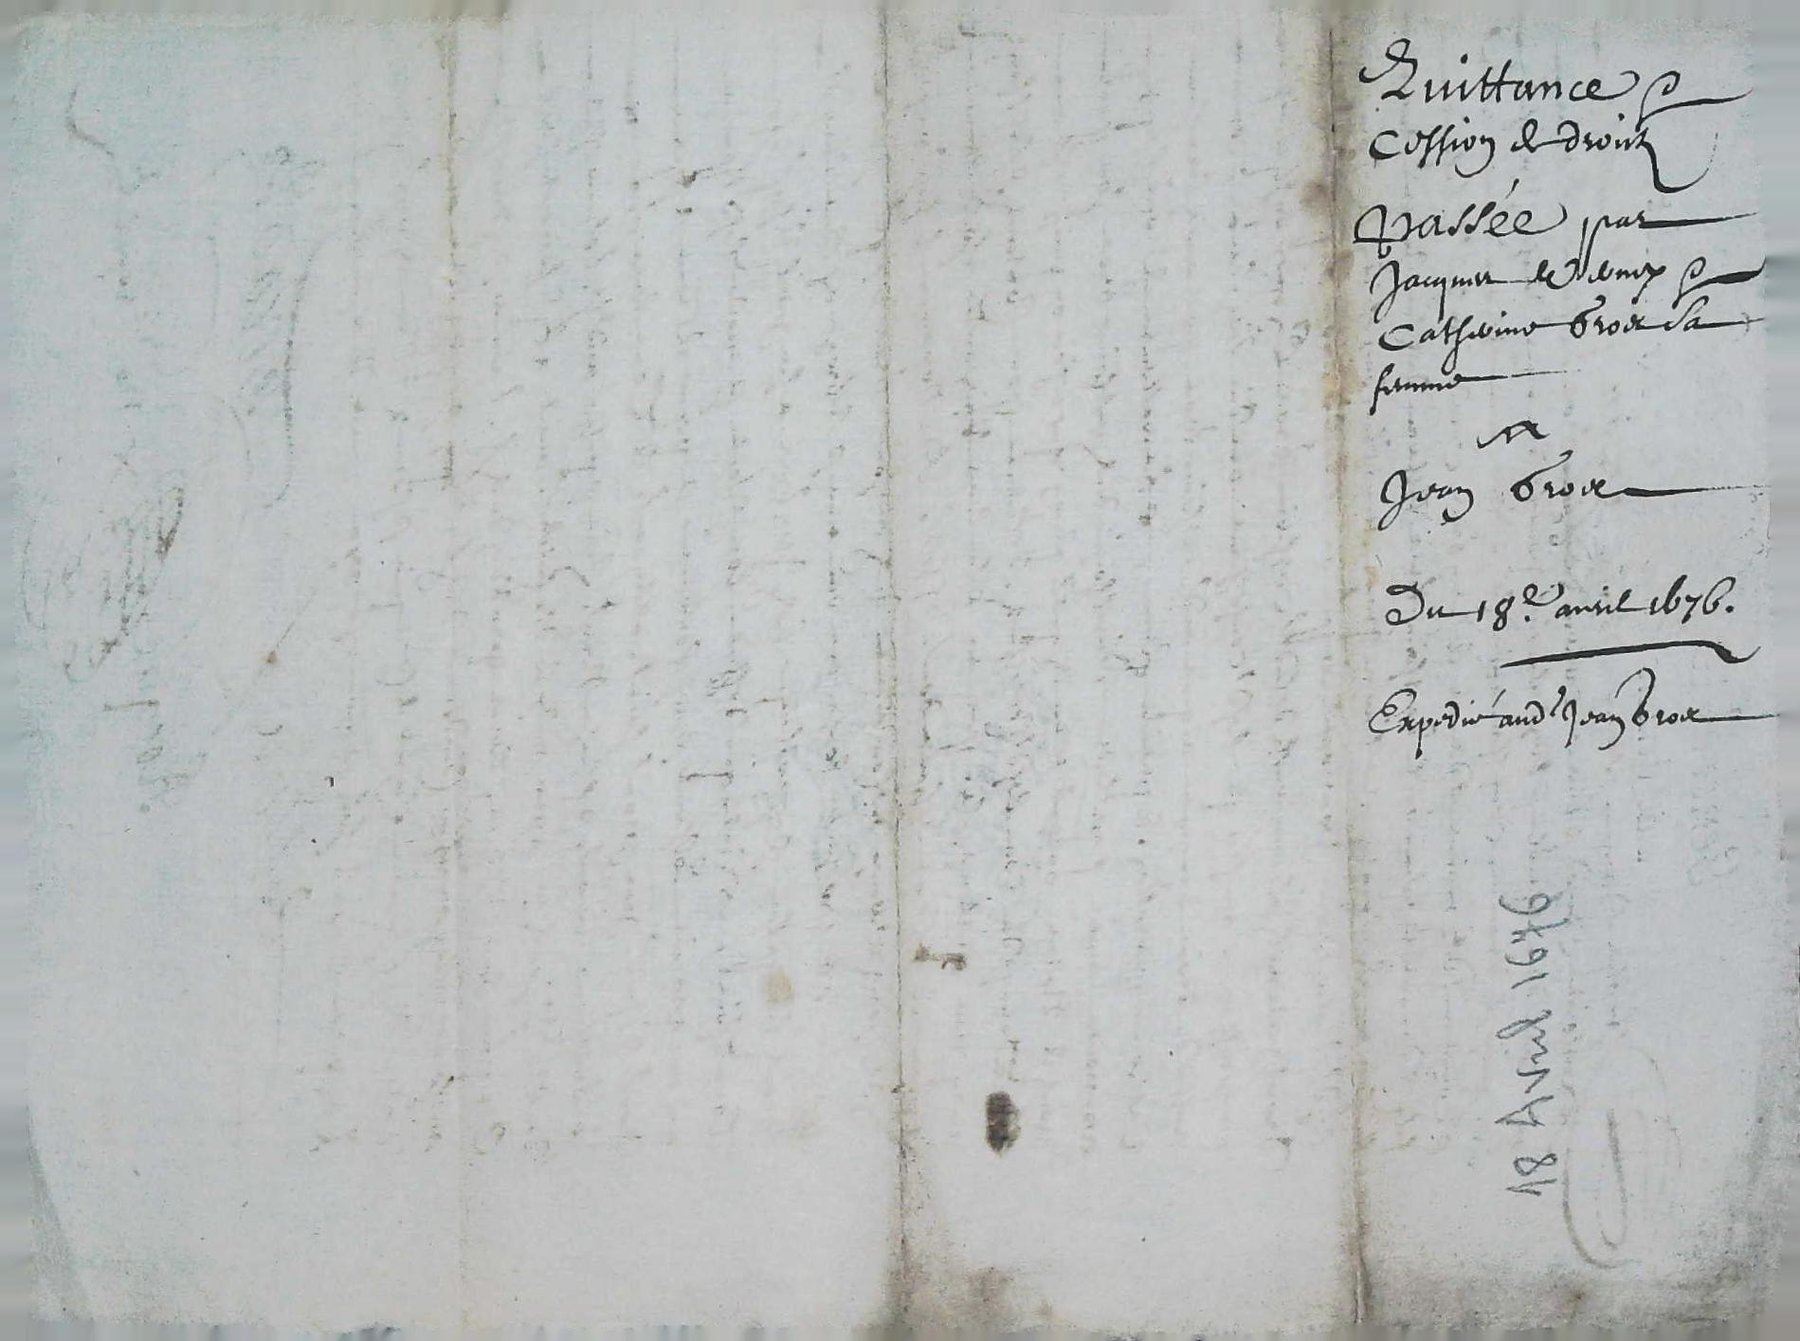 Quittance &
Cession de droict
Passée par
Jacques &
Catherine Broer sa
femme
A
Jean Broer
Du 18e. avril 1676.
Expedié aud. Jean Broer
18 Avril 1676